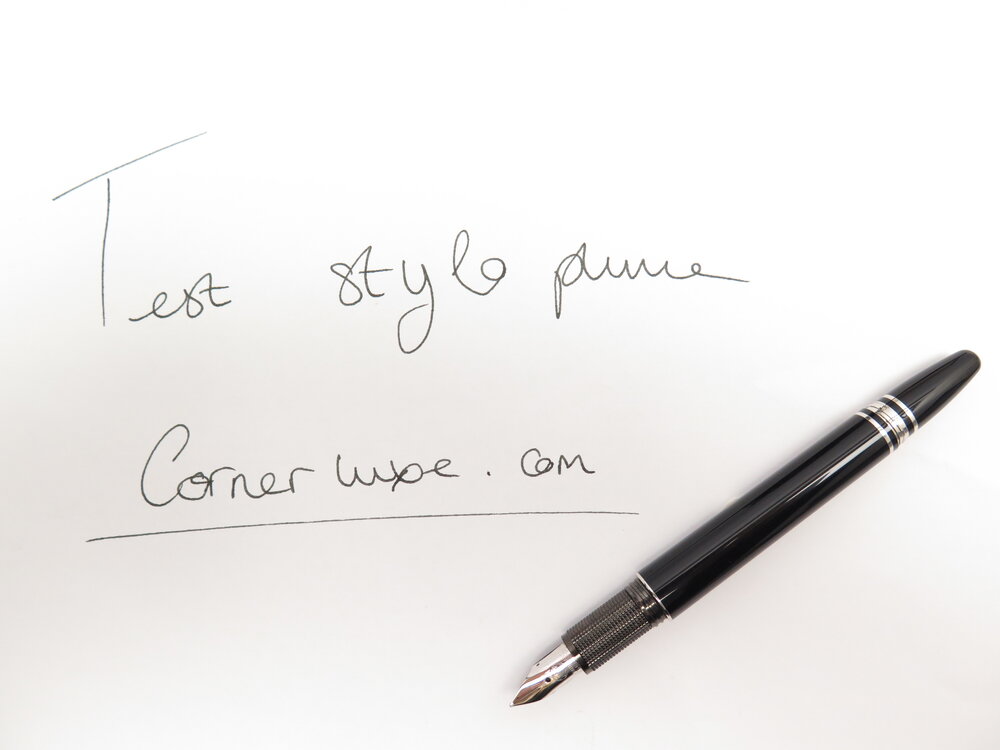 Test stylo plume
Cornerluxe.com